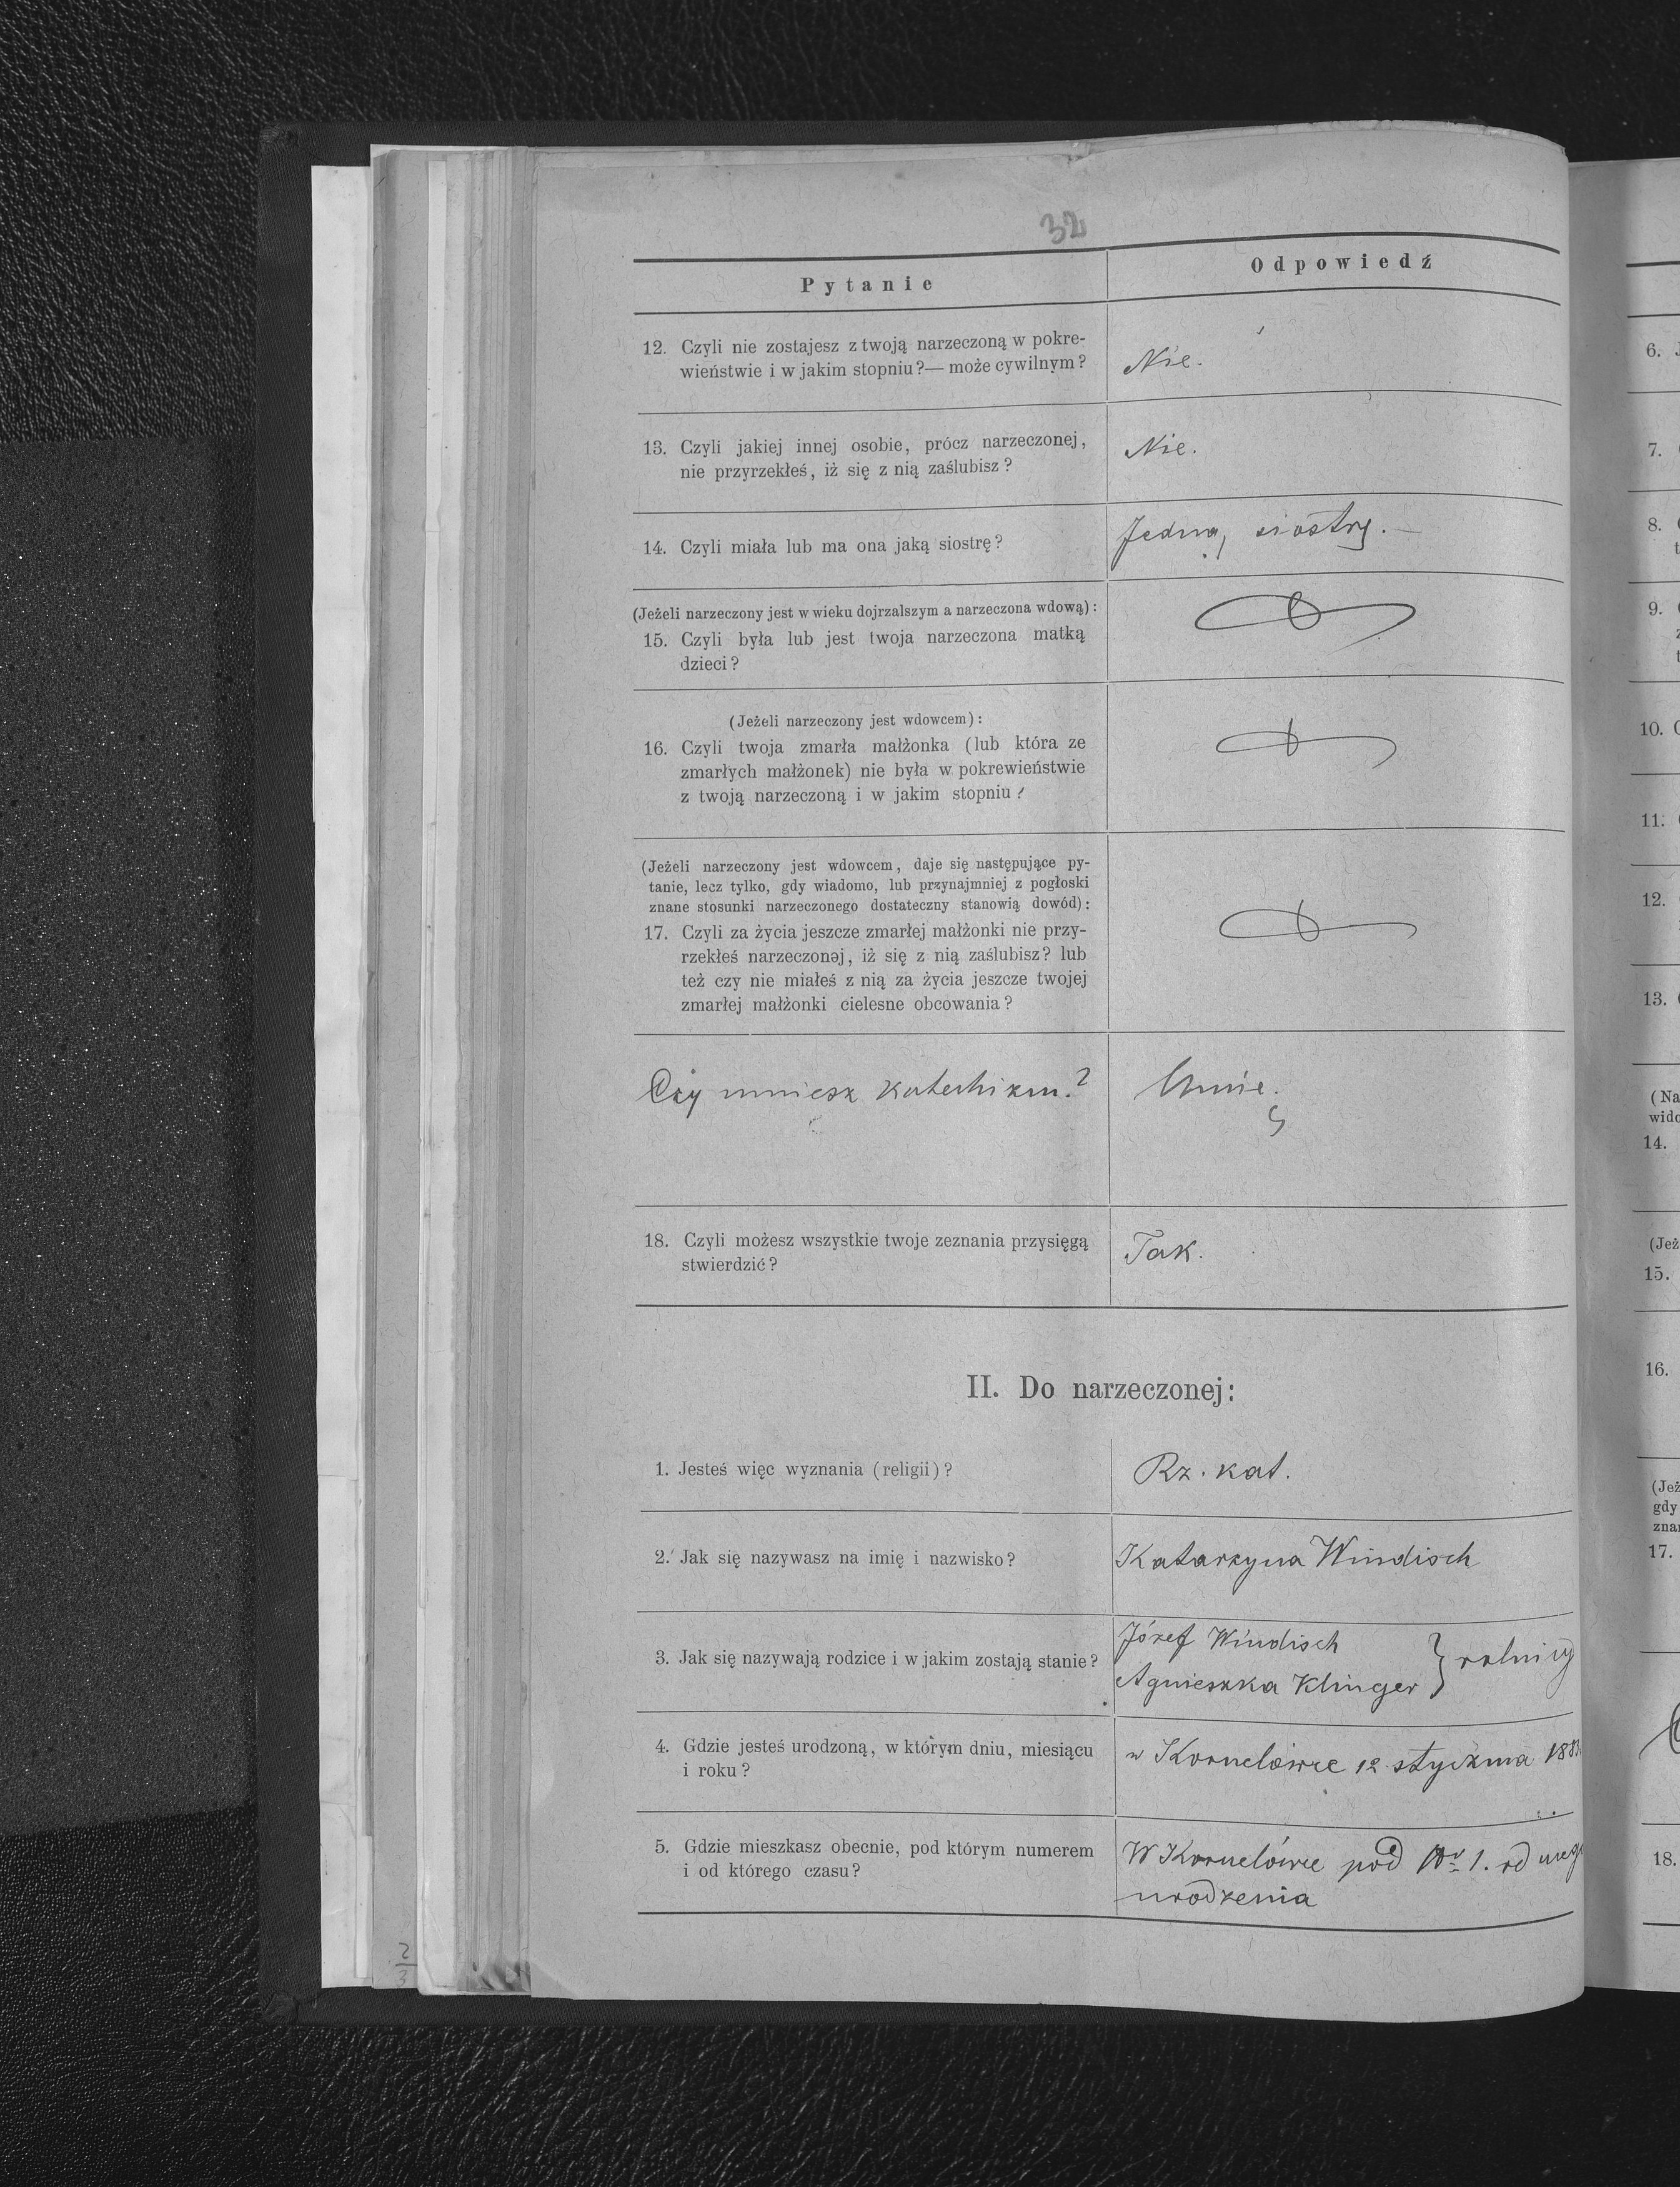 32
Pytanie
Odpowiedź
12. Czyli nie zostajesz z twoją narzeczoną w pokre-
wieństwie i w jakim stopniu?— może cywilnym?
Nie.
13. Czyli jakiej innej osobie, prócz narzeczonej,
nie przyrzekłeś, iż się z nią zaślubisz?
Nie.
14. Czyli miała lub ma ona jaką siostrę?
Jedną siostrę. —
(Jeżeli narzeczony jest w wieku dojrzalszym a narzeczona wdową):
15. Czyli była lub jest twoja narzeczona matką
dzieci?
(Jeżeli narzeczony jest wdowcem):
16. Czyli twoja zmarła małżonka (lub która ze
zmarłych małżonek) nie była w pokrewieństwie
z twoją narzeczoną i w jakim stopniu?
(Jeżeli narzeczony jest wdowcem, daje się następujące py-
tanie, lecz tylko, gdy wiadomo, lub przynajmniej z pogłoski
znane stosunki narzeczonego dostateczny stanowią dowód):
17. Czyli za życia jeszcze zmarłej małżonki nie przy-
rzekłeś narzeczonej, iż się z nią zaślubisz? lub
też czy nie miałeś z nią za życia jeszcze twojej
zmarłej małżonki cielesne obcowania?
Czy umiesz katechizm?
Umie.
18. Czyli możesz wszystkie twoje zeznania przysięgą
stwierdzić?
Tak.
II. Do narzeczonej:
1. Jesteś więc wyznania (religii)?
Rz. kat.
2. Jak się nazywasz na imię i nazwisko?
Katarzyna Windisch
3. Jak się nazywają rodzice i w jakim zostają stanie?
Józef Windisch
Agnieszka Klinger } rolnicy
4. Gdzie jesteś urodzoną, w którym dniu, miesiącu
i roku?
w Kornelówce 12 stycznia
5. Gdzie mieszkasz obecnie, pod którym numerem
i od którego czasu?
W Kornelówce pod Nr 1. od
urodzenia
2
3
6.
7.
8.
9.
10.
11.
12.
13.
(Na
wido
14.
(Jeż
15.
16.
(Jeż
gdy
znan
17.
18.